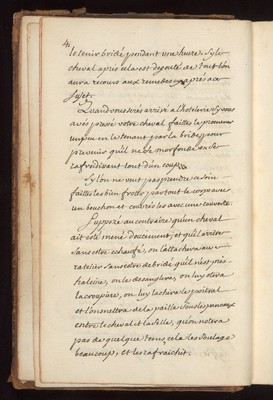 41.
le tenir bridé pendant une heure. Sy le
cheval apres cela est degouté de tout l'on
aura recours aux remedes cy apres a ce
sujet.
Quand vous serés arrivé a l'hotelerie sy vous
avés pressé votre cheval faittes le promener
un peu en le tenant par la bride pour
prevenir qu'il ne se morfonde en se
rafroidissant tout d'un coup.
Sy l'on ne veut pas prendre ce soin
faittes les bien frotter par tout le corps avec
un bouchon et couvrés les avec une couverte.
Supposé au contraire qu'un cheval
ait esté mené doucement, et qu'il arrive
sans etre echaufé, on l'attachera au
ratelier sans etre debridé qu'il n'est pris
haleine, on le desanglera, on luy otera
la croupiere, on luy lachera le poitral
et l'on mettra de la paille sous les panneaux
entre le cheval et la selle, qu'on n'otera
pas de quelque tems, cela les soulage
beaucoup, et les rafraichit.